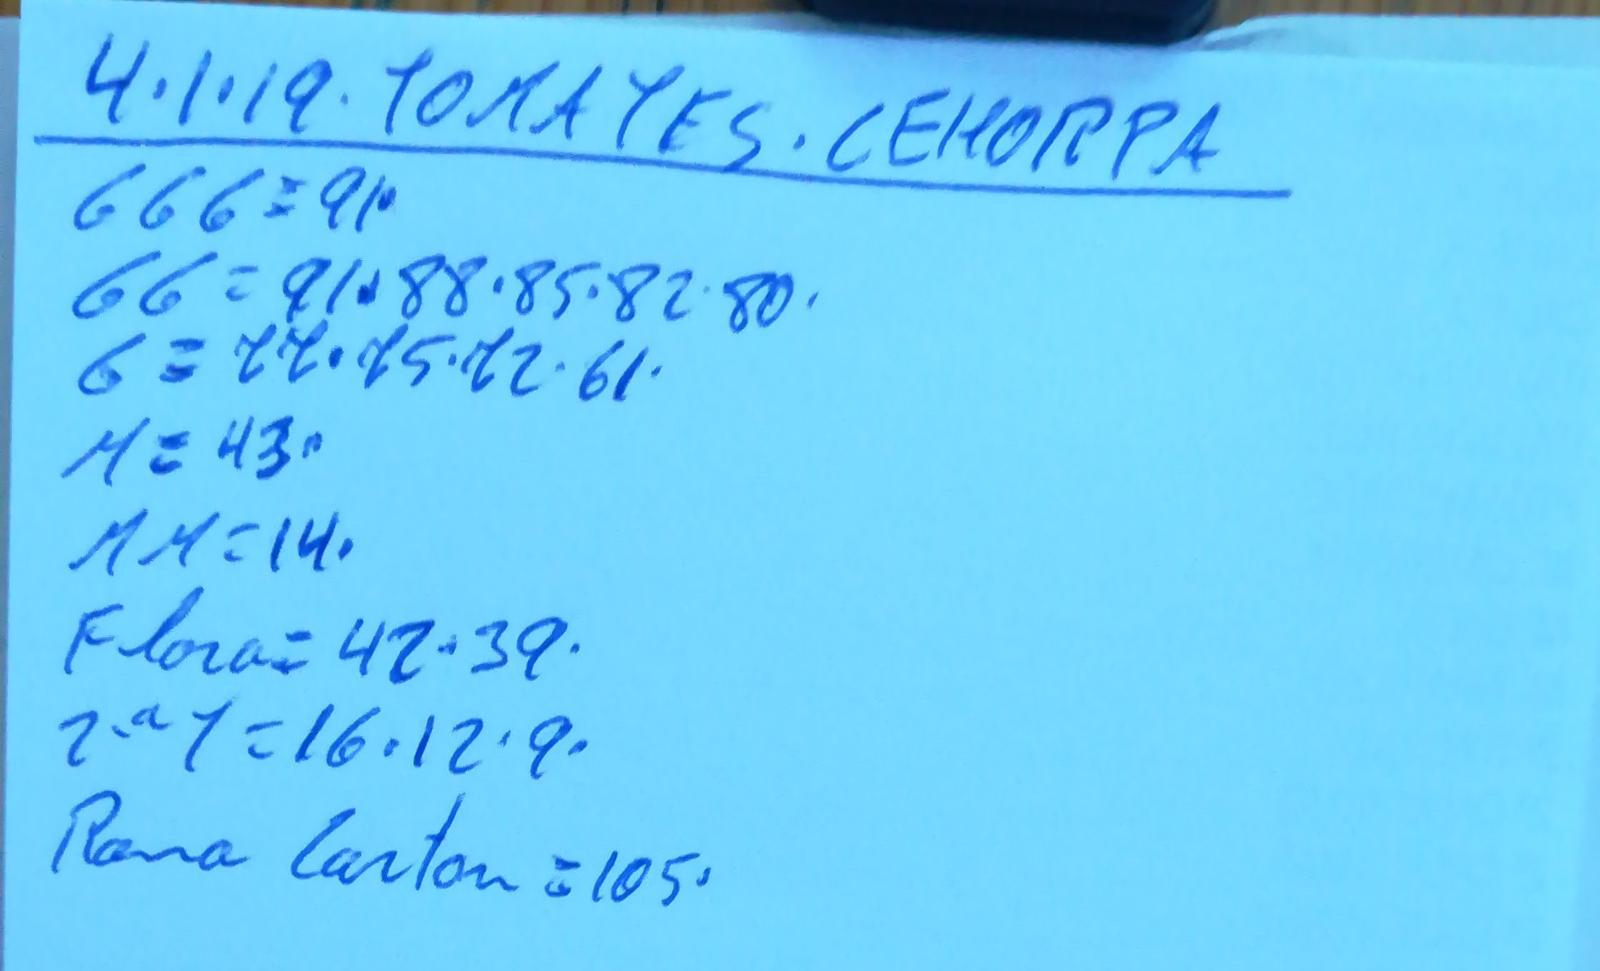 4.1.19. TOMATES. CEHORPA
GGG = 91.
GG = 91. 88. 85. 82. 80.
G = 77. 75. 72. 61.
M = 43.
MM = 14.
Flora = 42. 39.
2.ª T = 16. 12. 9.
Rama Carton = 105.